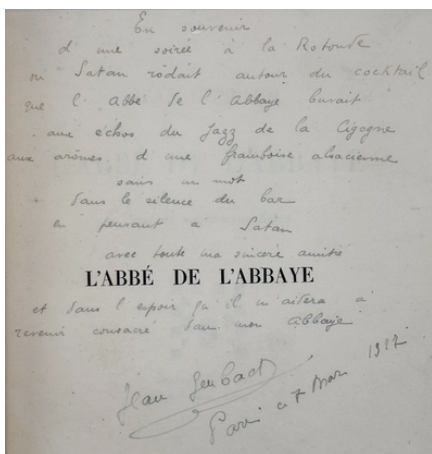 En souvenir
d'une soirée à la Rotonde
où Satan rôdait autour du cocktail
que l'Abbé de l'Abbaye buvait
aux échos du Jazz de la Cigogne
aux arômes d'une framboise alsacienne
sans un mot
dans le silence du bar
en pensant à Satan
avec toute ma sincère amitié
L'ABBÉ DE L'ABBAYE
et dans l'espoir qu'il m'aidera à
revenir consacré dans mon Abbaye
Jean Genbach
Paris ce 7 Mars 1927